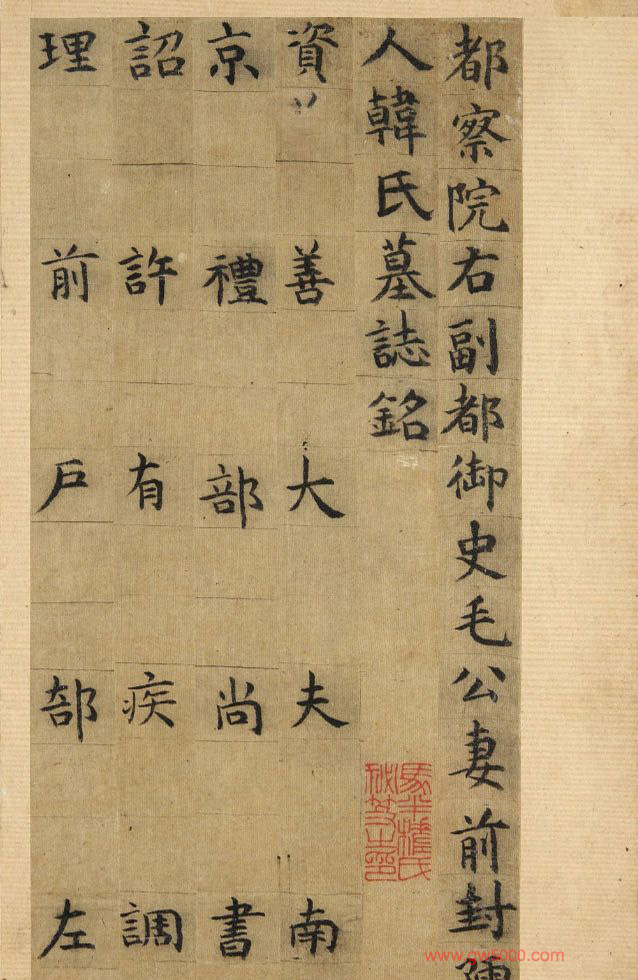 都察院右副都御史毛公妻前封孺
人韓氏墓誌銘
資善大夫南
京禮部尚書
詔許有疾調
理前戶部左
www.gw5000.com